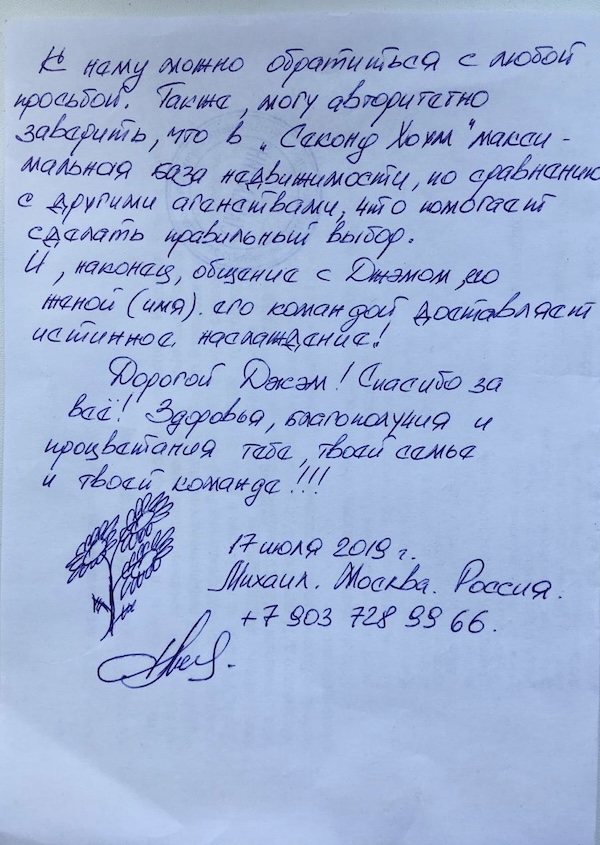 К нему можно обратиться с любой
просьбой. Также, могу авторитетно
заверить, что в „Секонд Хоум" макси-
мальная база недвижимости, по сравнению
с другими агенствами, что помогает
сделать правильный выбор.
И, наконец, общение с Джэмом, его
женой (имя). его командой доставляет
истинное наслаждение!
Дорогой Джэм! Спасибо за
всё! Здоровья, благополучия и
процветания тебе, твоей семье
и твоей команде!!!
17 июля 2019 г.
Михаил. Москва. Россия.
+7 903 728 99 66.